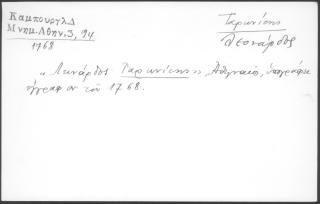 Καμπούργλ.Δ
Μνημ.Αθην.3, 94
1768
Ταρωνίτης
Λεονάρδος
"Λινάρδος Ταρωνίτης", Αθηναίος, υπογράφει
έγγραφον του 1768.